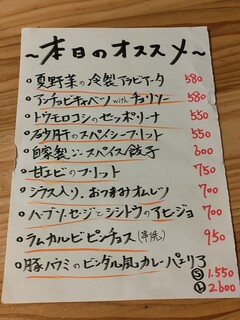 ~本日のオススメ~
○夏野菜の冷製アラビアータ 580
○アンチョビキャベツ with チョリソー 580
○トウモロコシのゼッポリーナ 550
○砂肝のスパイシーフリット 550
○自家製ごースパイス餃子 600
○甘エビのフリット 750
○シラス入り、おつまみオムレツ 700
○ハーブソーセージとシシトウのアヒージョ 700
○ラムカルビピンチョス(串焼) 950
○豚ハラミのビンダルー風カレーパエリア
Ⓢ1.550
Ⓛ2600